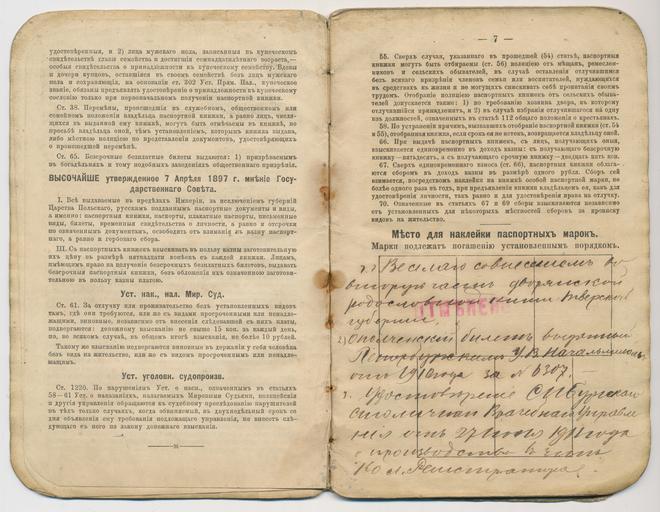 удостовѣренныя, и 2) лица мужского пола, записанныя въ купеческомъ
свидѣтельствѣ главы семейства и достигшія семнадцатилѣтняго возраста,—
особыя свидѣтельства о принадлежности къ купеческому семейству. Вдовы
и дочери купцовъ, оставшіяся въ своихъ семействѣ безъ лицъ мужского
пола и сохраняющія, на основаніи ст. 202 Уст. Прям. Нал., купеческое
званіе, обязаны предъявлять удостовѣреніе о принадлежности къ купеческому
сословію только при первоначальномъ полученіи паспортной книжки.
Ст. 38. Перемѣны, происшедшія въ служебномъ, общественномъ или
семейномъ положеніи владѣльца паспортной книжки, а равно лицъ, числя-
щихся въ выданной ему книжкѣ, могутъ быть отмѣчаемы въ книжкѣ, по
просьбѣ владѣльца оной, тѣмъ установленіемъ, которымъ книжка выдана,
либо мѣстною полиціею по представленіи документовъ, удостовѣряющихъ
о происшедшей перемѣнѣ.
Ст. 65. Безсрочные безплатные билеты выдаются: 1) призрѣваемымъ
въ богадѣльняхъ и тому подобныхъ заведеніяхъ общественнаго призрѣнія.
ВЫСОЧАЙШЕ утвержденное 7 Апрѣля 1897 г. мнѣніе Госу-
дарственнаго Совѣта.
I. Всѣ выдаваемые въ предѣлахъ Имперіи, за исключеніемъ губерній
Царства Польскаго, русскимъ подданнымъ паспортные документы и виды,
а именно: паспортныя книжки, паспорты, плакатные паспорты, письменные
виды, билеты, временныя свидѣтельства о личности, а равно и отсрочки
по означеннымъ документамъ, освободить отъ взиманія въ казну паспорт-
наго, а равно и гербоваго сбора.
III. Съ паспортныхъ книжекъ взыскивать въ пользу казны заготовитель-
ную ихъ цѣну въ размѣрѣ пятнадцати копѣекъ съ каждой книжки. Лицамъ,
имѣющимъ право на полученіе безсрочныхъ безплатныхъ билетовъ, выдавать
безсрочныя паспортныя книжки, безъ обложенія ихъ означенною заготови-
тельною въ пользу казны платою.
Уст. нак., нал. Мир. Суд.
Ст. 61. За отлучку или проживательство безъ установленныхъ видовъ
тамъ, гдѣ они требуются, или же съ видами просроченными или ненадле-
жащими, виновные, независимо отъ внесенія слѣдовавшей съ нихъ платы,
подвергаются: денежному взысканію не свыше 15 коп. за каждый день,
но, во всякомъ случаѣ, въ общемъ итогѣ взысканія, не болѣе 10 рублей.
Такому же взысканію подвергаются виновные въ держаніи у себя человѣка
безъ вида на жительство, или же съ видомъ просроченнымъ или ненадле-
жащимъ.
Уст. уголовн. судопроизв.
Ст. 1220. По нарушеніямъ Уст. о насп., означеннымъ въ статьяхъ
58—61 Уст. о наказаніяхъ, налагаемыхъ Мировыми Судьями, полицейскія
и другія управленія обращаются къ судебному преслѣдованію нарушителей
въ тѣхъ только случаяхъ, когда обвиняемый, въ двухнедѣльный срокъ со
дня объявленія ему требованія подлежащаго управленія, не внесетъ слѣ-
дующаго съ него по закону денежнаго взысканія.
— 7 —
55. Сверхъ случая, указаннаго въ прошедшей (54) статьѣ, паспортныя
книжки могутъ быть отбираемы (ст. 56) полиціею отъ мѣщанъ, ремеслен-
никовъ и сельскихъ обывателей, въ случаѣ оставленія отлучившимся
безъ всякаго призрѣнія членовъ семьи или воспитателей, нуждающихся
въ средствахъ къ жизни и не могущихъ снискивать себѣ пропитаніе своимъ
трудомъ. Отобраніе полиціею паспортныхъ книжекъ отъ сельскихъ обыва-
телей допускается также: 1) по требованію хозяина двора, къ которому
отлучившійся принадлежитъ, и 2) въ случаѣ избранія отлучившагося на одну
изъ должностей, означенныхъ въ статьѣ 112 общаго положенія о крестьянахъ.
58. По устраненіи причинъ, вызвавшихъ отобраніе паспортной книжки (ст. 54
и 55), отобранная книжка, если срокъ ея не истекъ, возвращается владѣльцу оной.
66. При выдачѣ паспортныхъ книжекъ, съ лицъ, получающихъ оныя,
взыскивается единовременно въ доходъ казны: съ получающаго безсрочную
книжку—пятьдесятъ, а съ получающаго срочную книжку—двадцать пять коп.
67. Сверхъ единовременнаго взноса (ст. 66), паспортныя книжки облага-
ются сборомъ въ доходъ казны въ размѣрѣ одного рубля. Сборъ сей
взимается, посредствомъ наклейки на книжкѣ особой паспортной марки, не
болѣе одного раза въ годъ, при предъявленіи книжки владѣльцемъ ея, какъ для
удостовѣренія личности, такъ равно и для удостовѣренія права на отлучку.
70. Означенные въ статьяхъ 67 и 69 сборы взыскиваются независимо
отъ установленныхъ для нѣкоторыхъ мѣстностей сборовъ за прописку
видовъ на жительство.
Мѣсто для наклейки паспортныхъ марокъ.
Марки подлежатъ погашенію установленнымъ порядкомъ.
вторую часть дворянской
родословной книги Тверской
губерніи
ОТМѢНЕНО
2) билетъ выданный
отъ 1910 года за № 6307.
3. Удостовѣреніе
Столичнаго Врачебнаго Управле
нія отъ 27 1911 года
о производствѣ въ